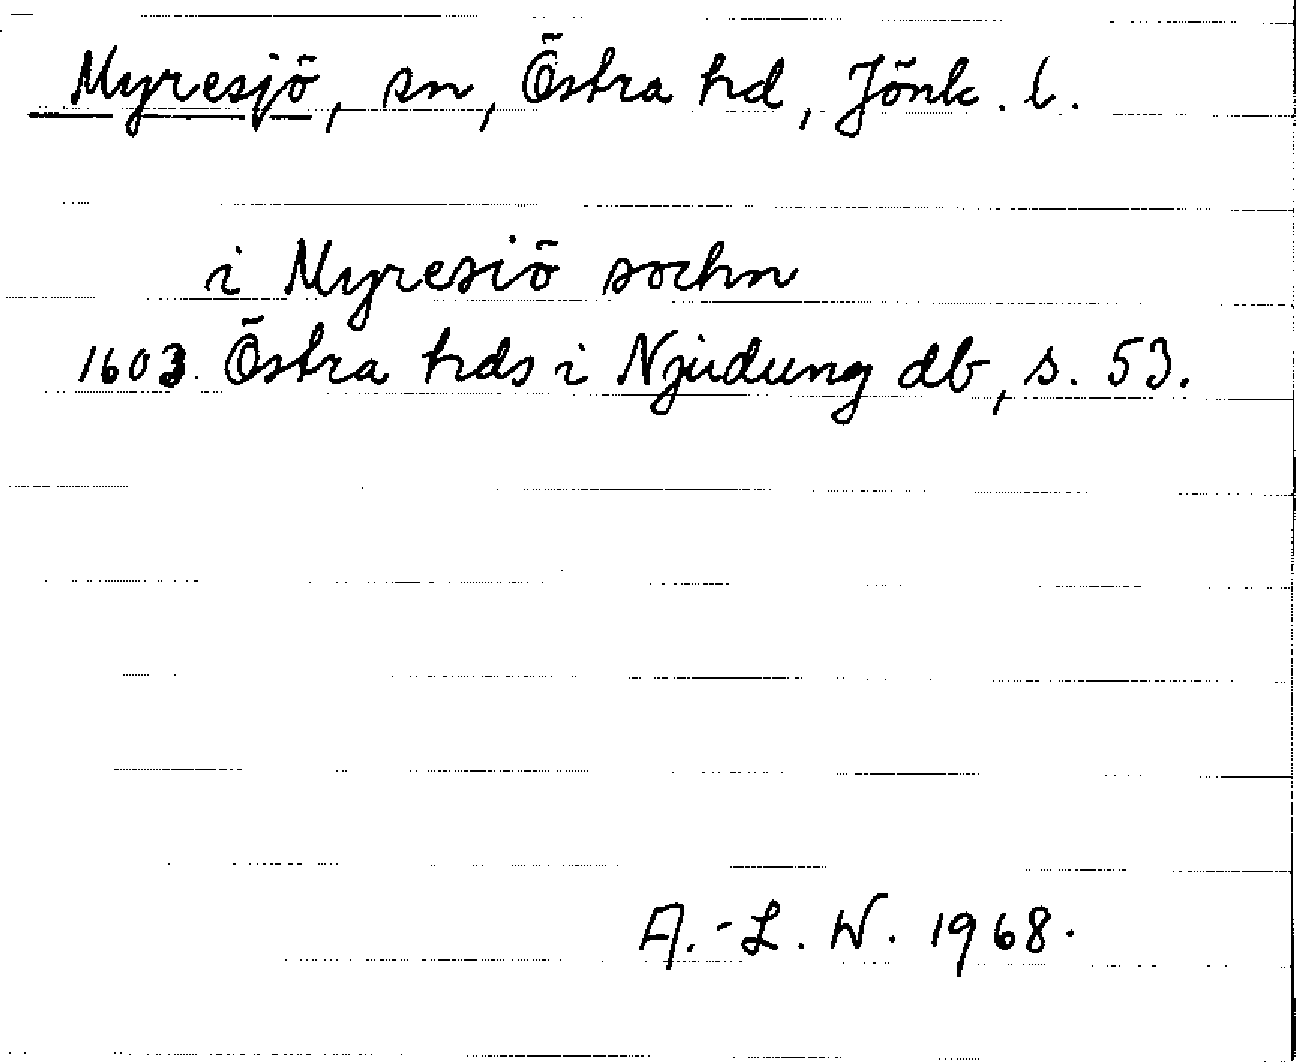 Myresjö, sn, Östra hd, Jönk. l.
i Myresiö sochn
1603. Östra hds i Njudung db, s. 53.
A.-L. W. 1968.